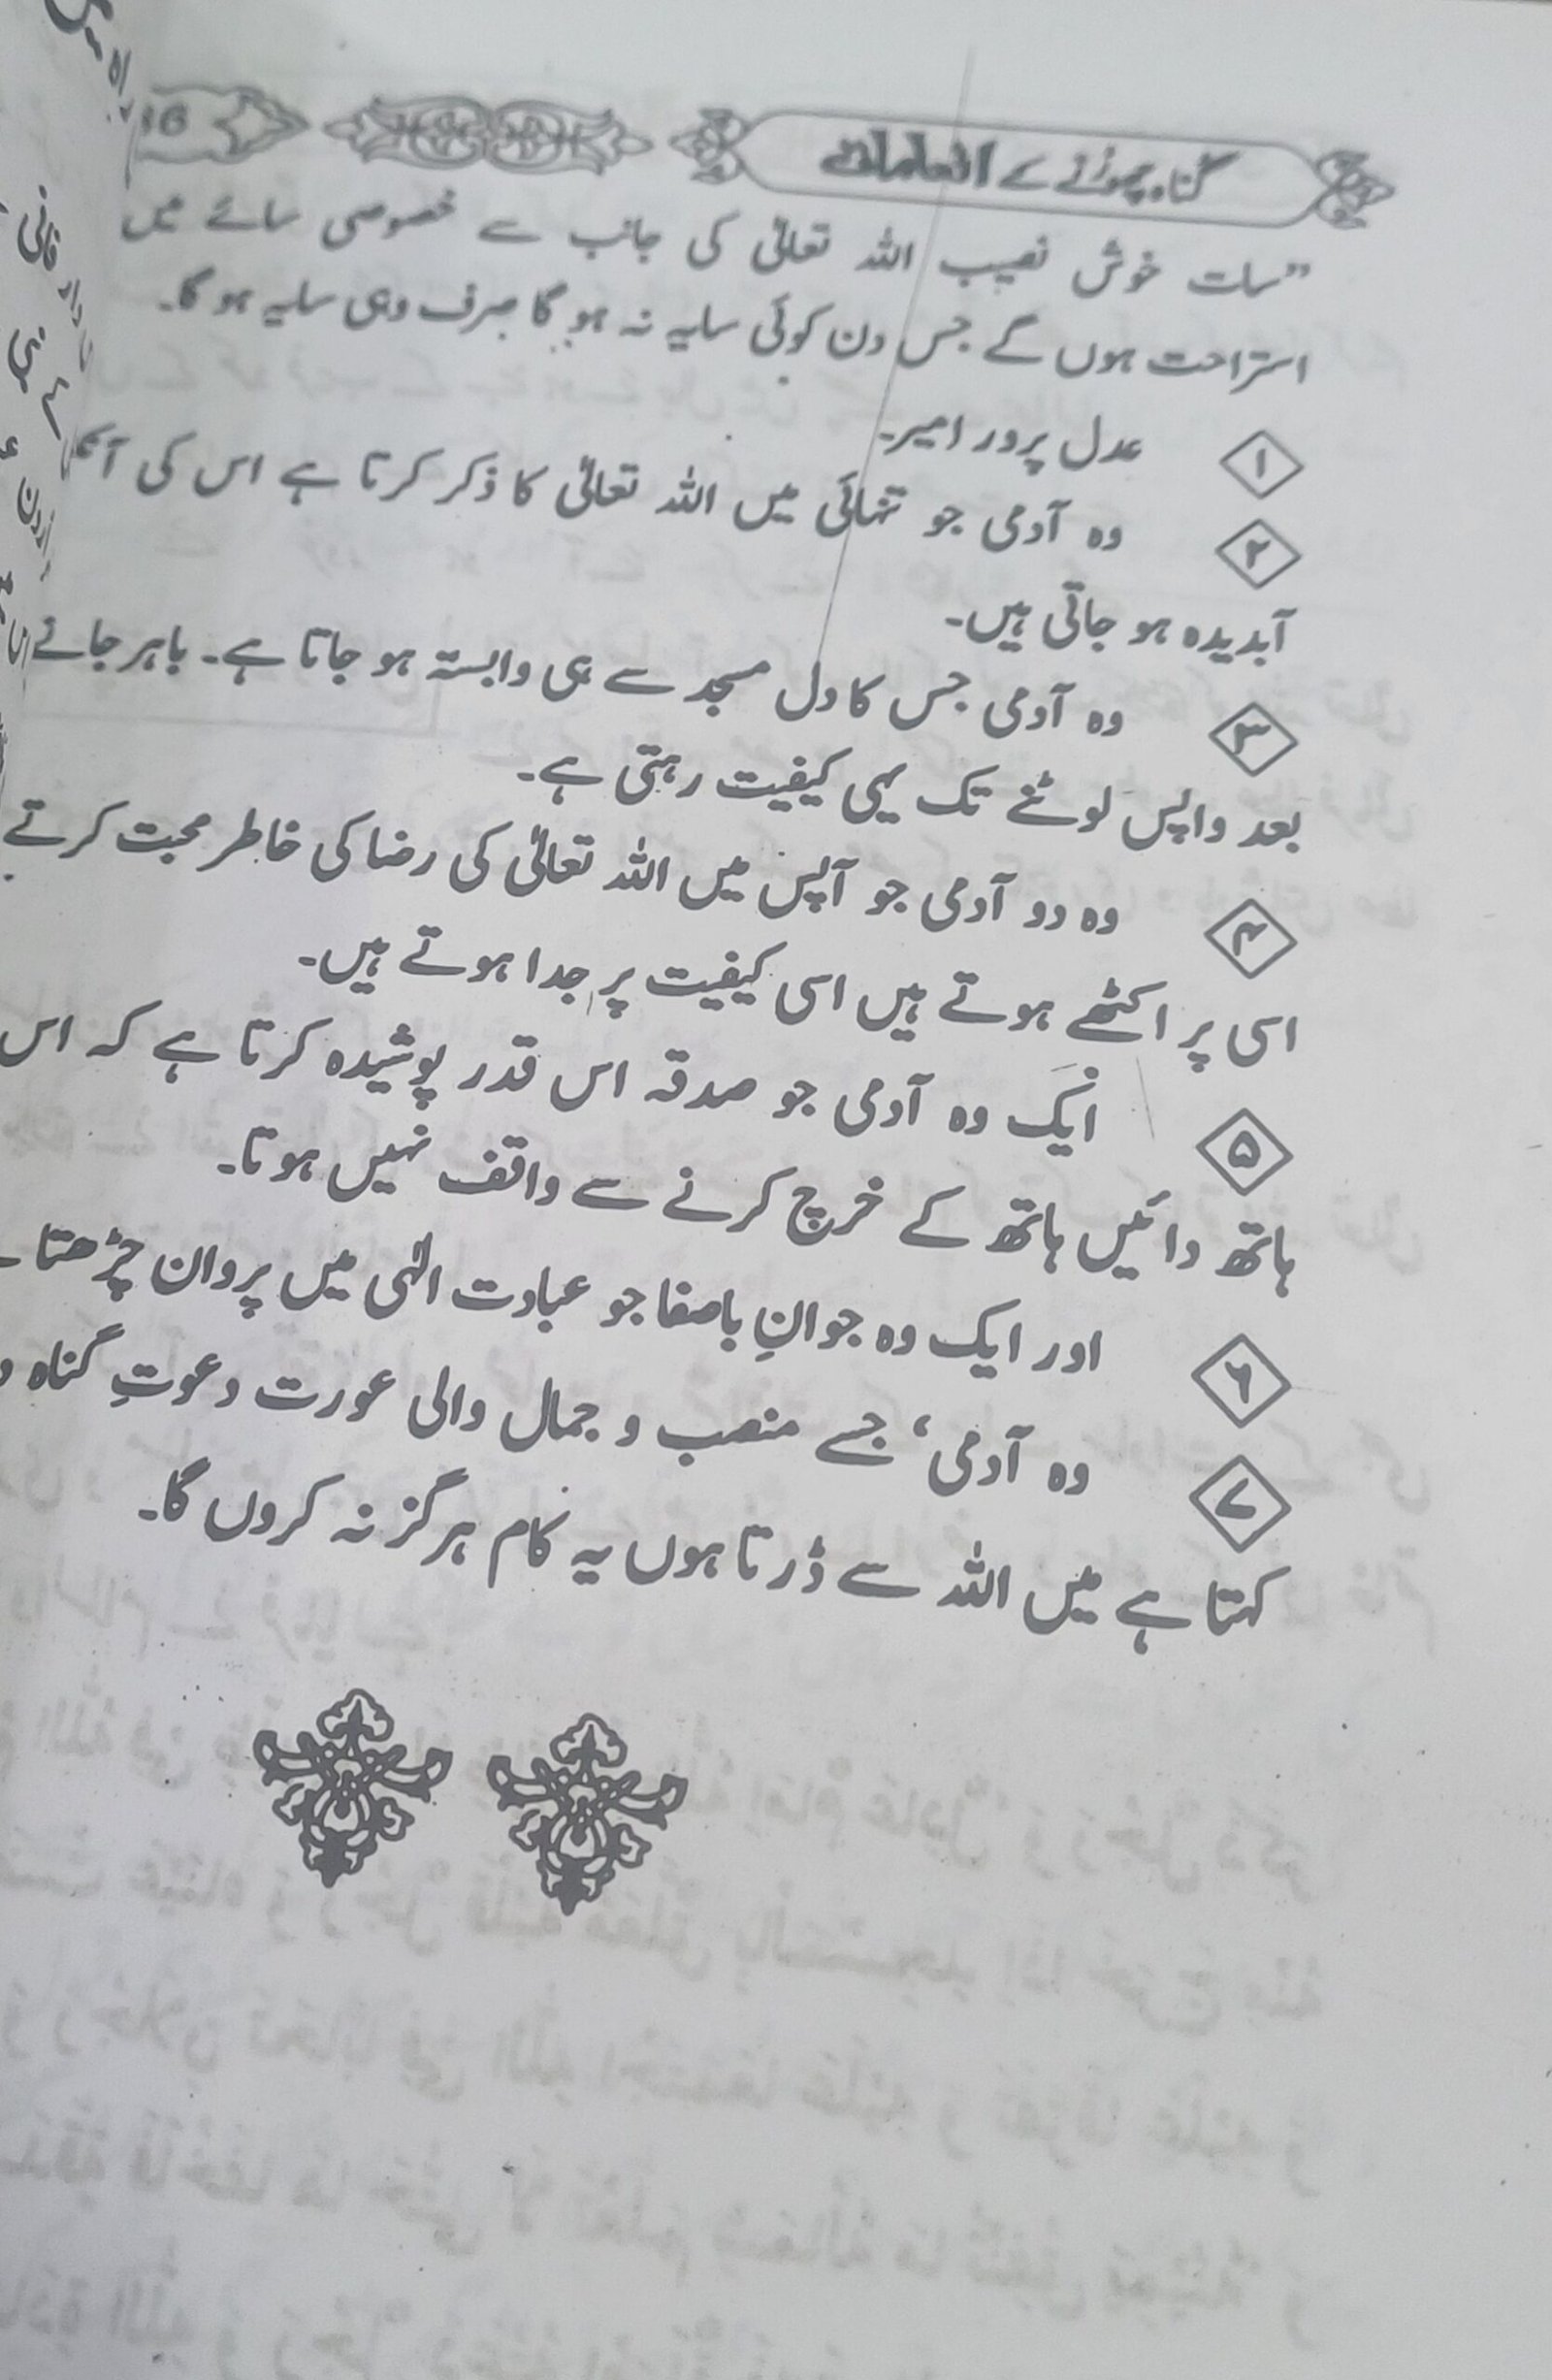 گناہ چھوڑنے کے انعامات
16
”سات خوش نصیب اللہ تعالیٰ کی جانب سے خصوصی سائے میں
استراحت ہوں گے جس دن کوئی سایہ نہ ہو گا صرف وہی سایہ ہو گا۔
۱ عدل پرور امیر۔
۲ وہ آدمی جو تنہائی میں اللہ تعالیٰ کا ذکر کرتا ہے اس کی
آبدیدہ ہو جاتی ہیں۔
۳ وہ آدمی جس کا دل مسجد سے ہی وابستہ ہو جاتا ہے۔ باہر جانے
بعد واپس لوٹنے تک یہی کیفیت رہتی ہے۔
۴ وہ دو آدمی جو آپس میں اللہ تعالیٰ کی رضا کی خاطر محبت کرتے
اسی پر اکٹھے ہوتے ہیں اسی کیفیت پر جدا ہوتے ہیں۔
۵ ایک وہ آدمی جو صدقہ اس قدر پوشیدہ کرتا ہے کہ اس
ہاتھ دائیں ہاتھ کے خرچ کرنے سے واقف نہیں ہوتا۔
۶ اور ایک وہ جوانِ باصفا جو عبادت الٰہی میں پروان چڑھتا
۷ وہ آدمی، جسے منصب و جمال والی عورت دعوتِ گناہ
کہتا ہے میں اللہ سے ڈرتا ہوں یہ کام ہرگز نہ کروں گا۔